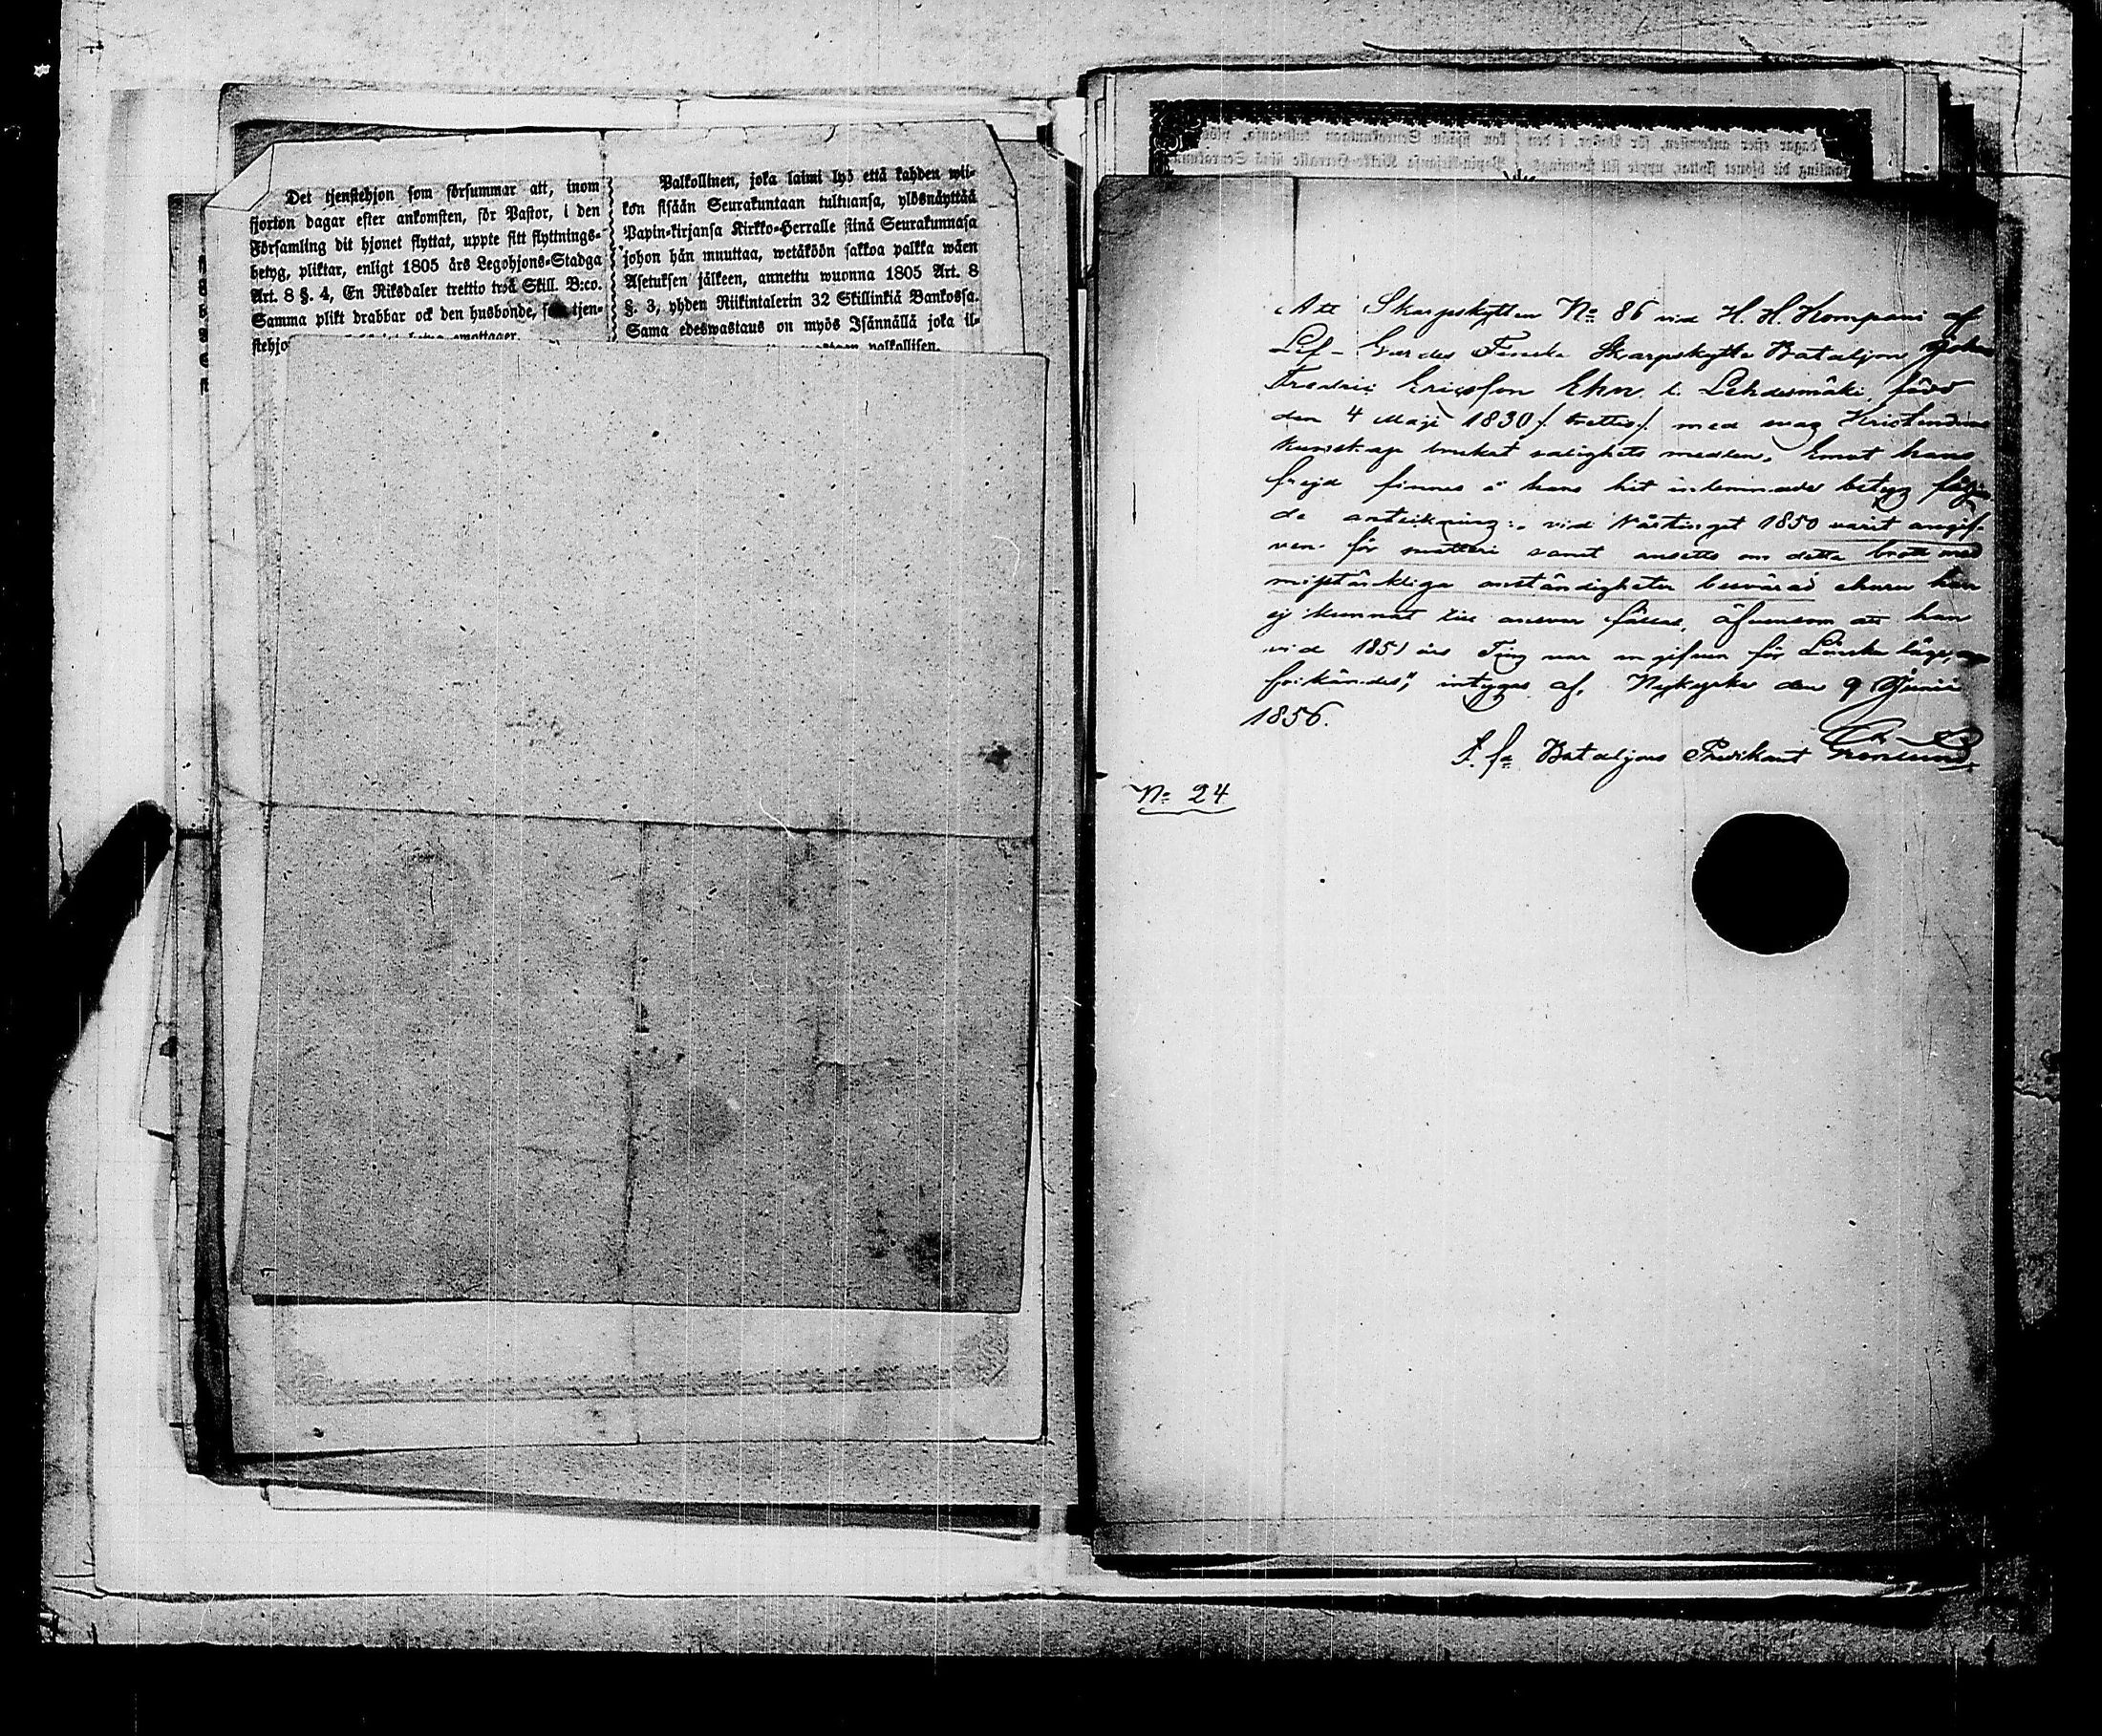 Det tjenstehjon som försummar att, inom
fjorton dagar efter ankomsten, för Pastor, i den
Församling dit hjonet flyttat, uppte sitt flyttnings-
betyg, pliktar, enligt 1805 års Legohjons-Stadga
Art. 8 §. 4, En Riksdaler trettio två Skill. B:co.
Samma plikt drabbar ock den husbonde, tjen-
stehjo emottager.
Palkollinen, joka laimi lyö että kahden wii-
kon sisään Seurakuntaan tultuansa, ylösnäyttää
Papin-kirjansa Kirkko-Herralle siinä Seurakunnasa
johon hän muuttaa, wetäköön sakkoa palkka wäen
Asetuksen jälkeen, annettu wuonna 1805 Art. 8
§. 3, yhden Riikintalerin 32 Skillinkiä Bankossa.
Sama edeswastaus on myös Isännällä joka il-
palkollisen.
Att Skarpskytten No 86 vid H. H. Kompani af
Lif-Gardes Finska Skarpskytte Bataljon Johan
Fredric Ericsson Ekn i. Lehdesmäki, född
den 4 Maji 1830 /. trettio ./ med svag Kristendoms
kunskap brukat salighets medlen. Emot hans
frejd finnes å hans hit inlemnade betyg följan
de anteikning: vid Vårtinget 1850 varit angif-
ven för samt ansetts om detta brott med
misstänkliga omständigheter besvärad ehuru han
ej kunnat till ansvar fällas, äfvensom att han
vid 1851 års Ting var angifven för
frikändes", intygas af, Nykyrka den 9 Junii
1856.
Bataljons Predikant Grönlund.
No 24